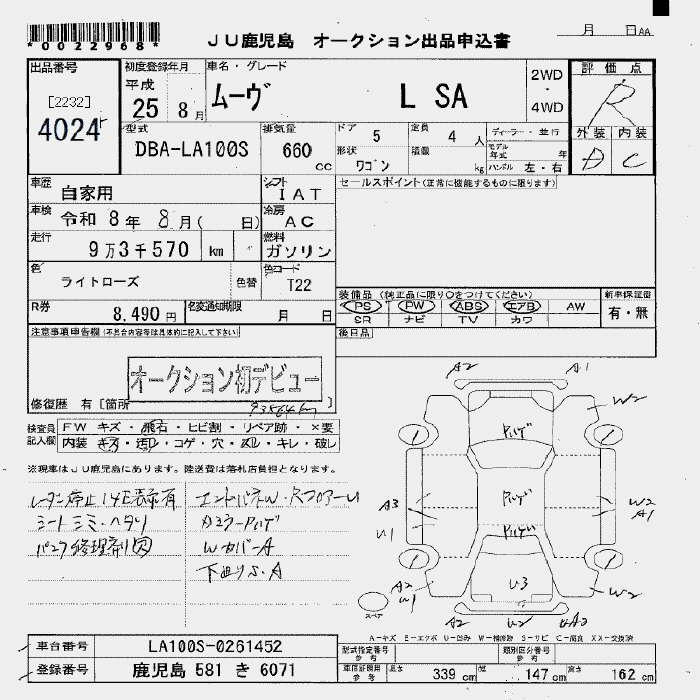 *0022968*
JU鹿児島 オークション出品申込書
月 日AA
出品番号
[2232]
4024
初度登録年月
平成
25 8月
車名・グレード
ムーヴ L SA
2WD
・
4WD
評価点
R
外装 内装
D C
型式
DBA-LA100S
排気量
660 cc
ドア 5
定員 4 人
ディーラー・並行
形状 ワゴン
積載 kg
モデル年式 年
ハンドル 左・右
車歴 自家用
シフト IAT
セールスポイント(正常に機能するものに限ります)
車検 令和 8年 8月( 日)
冷房 AC
走行 9万3千570 km
燃料 ガソリン
色 ライトローズ
色替
色コード T22
装備品(純正品に限り○をつけてください)
新車保証書
PS PW ABS エアB AW
有・無
SR ナビ TV カワ
R券 8,490円
名変通知期限 月 日
後日品
注意事項申告欄(不具合内容等は具体的に記入して下さい)
オークション初デビュー
修復歴 有[箇所 ]
93564km
検査員記入欄
FW キズ・飛石・ヒビ割・リペア跡・×要
内装 キズ・汚れ・コゲ・穴・ヌレ・キレ・破レ
※現車はJU鹿児島にあります。陸送費は落札店負担となります。
シートシミ・ヘタリ
パンク修理剤
Wカバ-A
A2 A1
W2
A3
U1
W2
A1
U3
A2
W1
W2
A2 U2 UA2
スペア
A-キズ E-エクボ U-凹み W-補修跡 S-サビ C-腐食 XX-交換済
車台番号 LA100S-0261452
登録番号 鹿児島 581 き 6071
型式指定番号 参考
類別区分番号 参考
車検証記載 参考
長さ 339 cm 幅 147 cm 高さ 162 cm